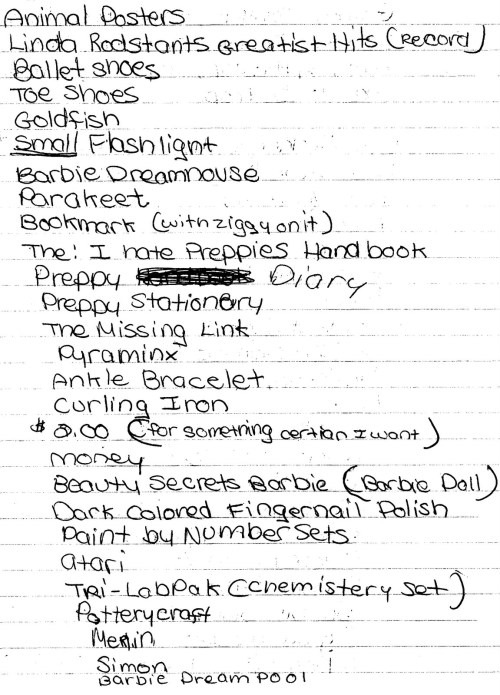 Animal Posters
Linda Rodstants Greatist Hits (Record)
Ballet shoes
Toe Shoes
Goldfish
Small Flashlight
Barbie Dreamhouse
Parakeet
Bookmark (with ziggy on it)
The: I hate Preppies Handbook
Preppy Diary
Preppy Stationery
The Missing Link
Pyraminx
Ankle Bracelet
Curling Iron
$ 3.00 (for something certian I want)
money
Beauty Secrets Barbie (Barbie Doll)
Dark Colored Fingernail Polish
Paint by Number Sets
Atari
TRi-LabPak (Chemistery set)
Potterycraft
Merlin
Simon
Barbie Dream Pool